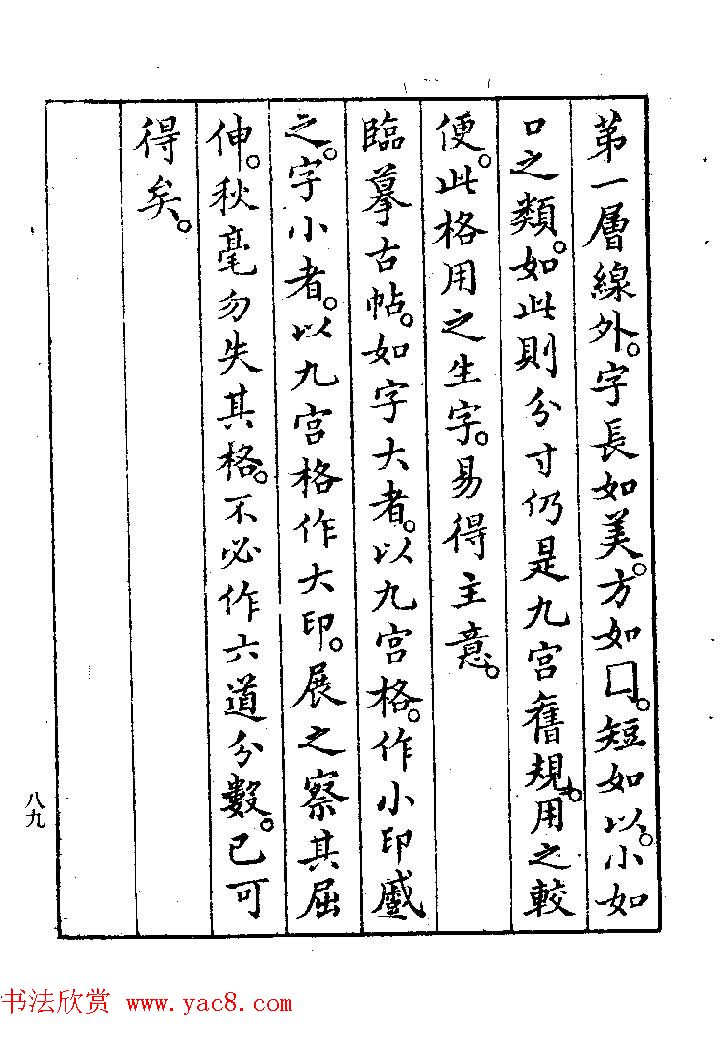 第一層線外。字長如美。方如囗。短如以。小如
口之類。如此則分寸仍是九宫舊規。用之較
便。此格用之生字。易得主意。
臨摹古帖。如字大者。以九宫格。作小印蹙
之。字小者。以九宫格作大印。展之察其屈
伸。秋毫勿失其格。不必作六道分數。已可
得矣。
八九
书法欣赏 www.yac8.com